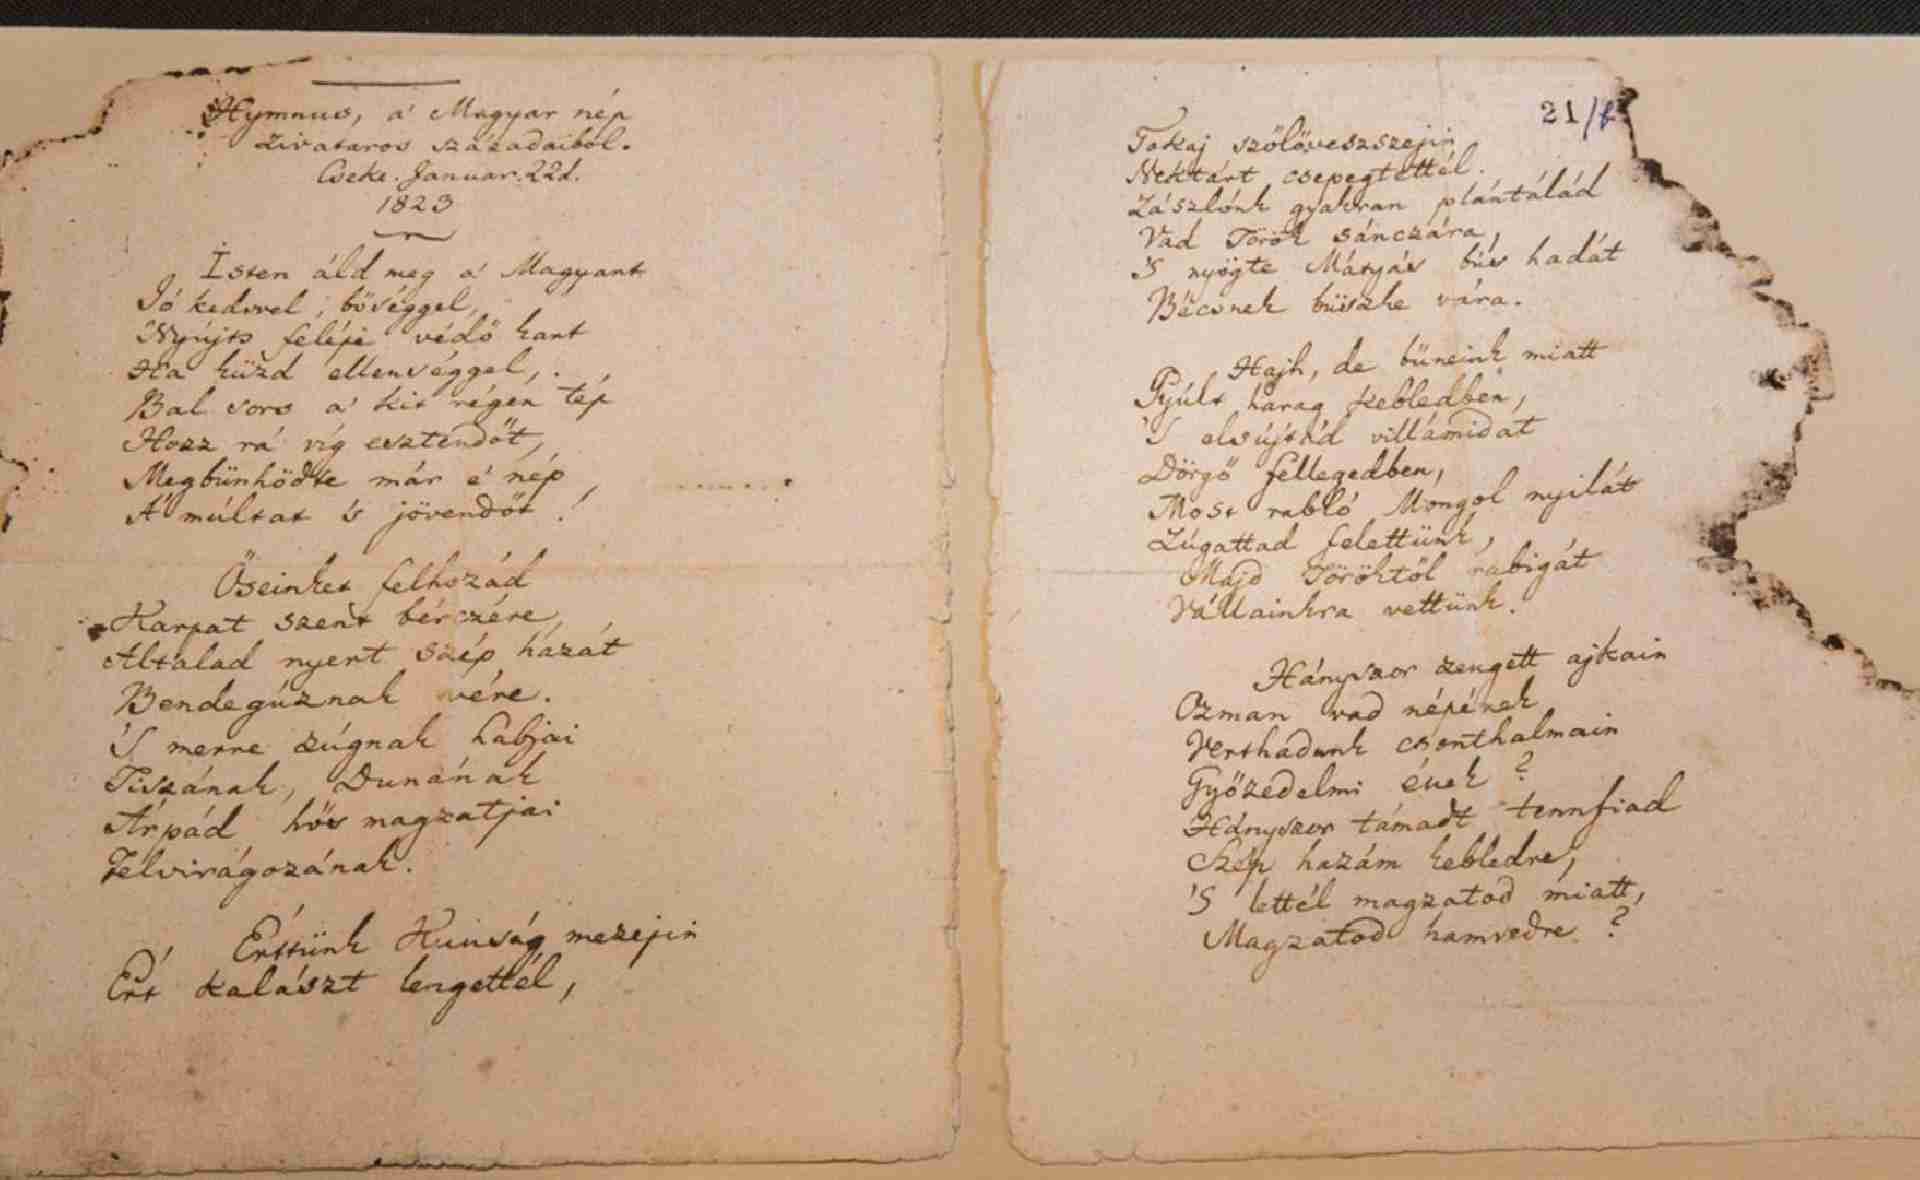 Hymnus, a' Magyar nép
zivataros századaiból.
Cseke. Januar. 22d.
1823
Isten áld meg a' Magyart
Jó kedvvel, bőséggel,
Nyújts feléje védő kart
Ha küzd ellenséggel,
Bal sors a' kit régen tép
Hozz rá víg esztendőt,
Megbünhödte már é nép
A' múltat 's jövendőt!
Őseinket felhozád
Karpat szent bérczére,
Általad nyert szép hazát
Bendegúznak vére.
'S merre zúgnak habjai
Tiszának, Dunának
Árpád hős magzatjai
Felvirágozának.
Értünk Kunság mezejin
Ért kalászt lengettél,
21/
Tokaj szőlőveszszejin
Nektárt csepegtettél.
Zászlónk gyakran plántálád
Vad Török sánczára,
'S nyögte Mátyás bús hadát
Bécsnek büszke vára.
Hajh, de bűneink miatt
Gyúlt harag kebledben,
'S elsújtád villámidat
Dörgő fellegedben,
Most rabló Mongol nyilát
Zúgattad felettünk,
Majd Töröktől rabigát
Vállainkra vettünk.
Hányszor zengett ajkain
Ozman vad népének
Vert hadunk csonthalmain
Győzedelmi ének?
Hányszor támadt tennfiad
Szép hazám kebledre,
'S lettél magzatod miatt,
Magzatod hamvedre?